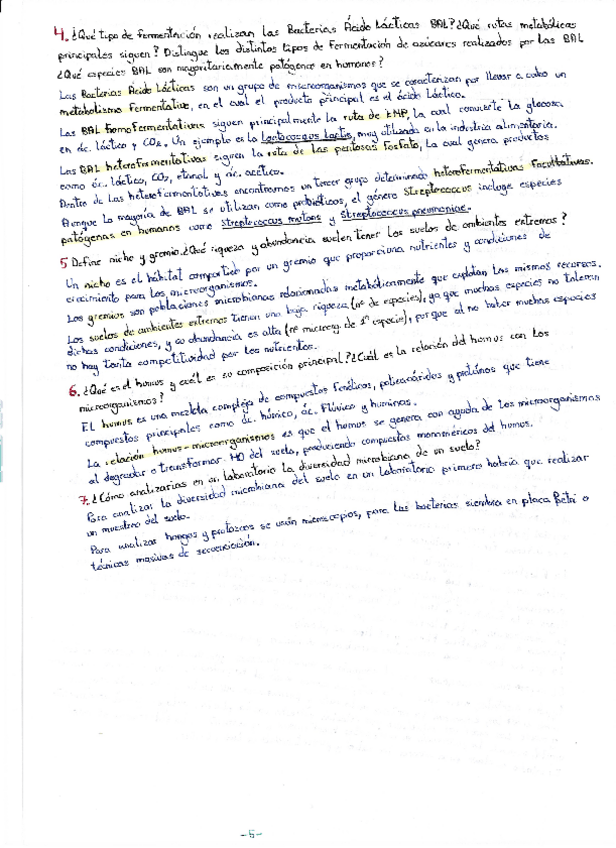 4. ¿Qué tipo de fermentación realizan las Bacterias Ácido Lácticas BAL? ¿Qué rutas metabólicas
principales siguen? Distingue los distintos tipos de Fermentación de azúcares realizados por las BAL
¿Qué especies BAL son mayoritariamente patógenas en humanos?
Las Bacterias Ácido Lácticas son un grupo de microorganismos que se caracterizan por llevar a cabo un
metabolismo Fermentativo, en el cual el producto principal es el ácido Láctico.
Las BAL homofermentativas siguen principalmente la ruta de EMP, la cual convierte la glucosa
en ác. láctico y CO2. Un ejemplo es la Lactococcus Lactis, muy utilizada en la industria alimentaria.
Las BAL heterofermentativas siguen la ruta de las pentosas fosfato, la cual genera productos
como ác. láctico, CO2, etanol y ác. acético.
Dentro de las heterofermentativas encontramos un tercer grupo denominado heterofermentativas Facultativas.
Aunque la mayoría de BAL se utilizan como probióticos, el género Streptococcus incluye especies
patógenas en humanos como Streptococcus mutans y Streptococcus pneumoniae.
5 Define nicho y gremio. ¿Qué riqueza y abundancia suelen tener los suelos de ambientes extremos?
Un nicho es el hábitat compartido por un gremio que proporciona nutrientes y condiciones de
crecimiento para los microorganismos.
Los gremios son poblaciones microbianas relacionadas metabólicamente que explotan los mismos recursos.
Los suelos de ambientes extremos tienen una baja riqueza (nº de especies), ya que muchas especies no toleran
dichas condiciones, y su abundancia es alta (nº microorg de 1ª especie), porque al no haber muchas especies
no hay tanta competitividad por los nutrientes.
6. ¿Qué es el humus y cuál es su composición principal? ¿Cuál es la relación del humus con los
microorganismos?
El humus es una mezcla compleja de compuestos fenólicos, polisacáridos y proteínas que tiene
compuestos principales como ác. húmico, ác. Flúvico y huminas.
La relación humus-microorganismos es que el humus se genera con ayuda de los microorganismos
al degradar o transformar MO del suelo, produciendo compuestos monoméricos del humus.
7. ¿Cómo analizarías en un laboratorio la diversidad microbiana de un suelo?
Para analizar la diversidad microbiana del suelo en un laboratorio primero habría que realizar
un muestreo del suelo.
Para analizar hongos y protozoos se usan microscopios, para las bacterias siembra en placa Petri o
técnicas masivas de secuenciación.
-5-